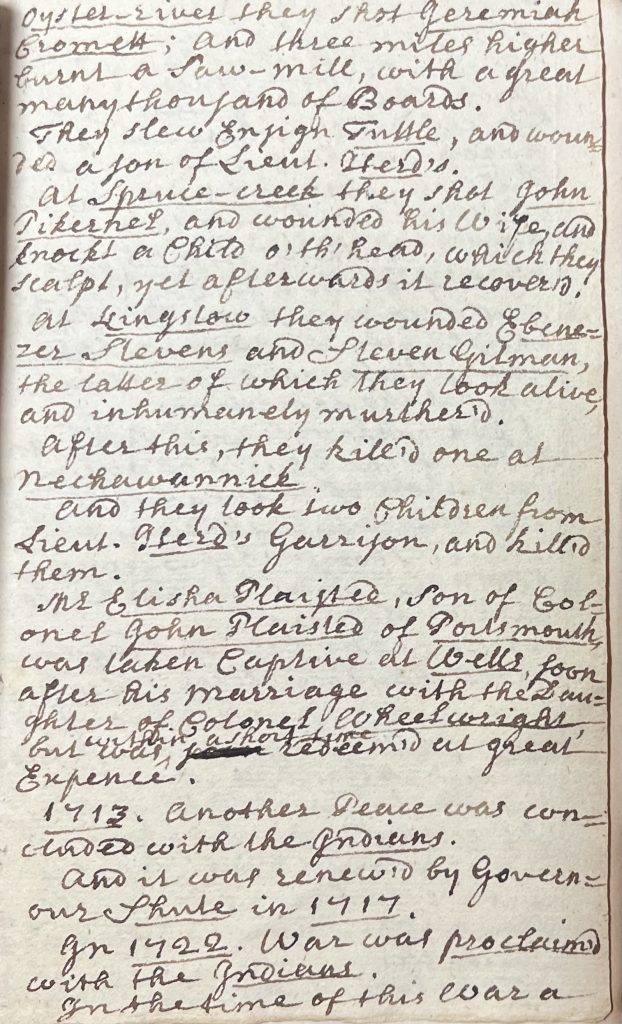 Oyster-river they shot Jeremiah
Cromett; and three miles higher
burnt a Saw-mill, with a great
many thousand of Boards.
They slew Ensign Tuttle, and woun-
ded a son of Lieut. Herd's.
At Spruce-creek they shot John
Pikernel, and wounded his Wife, and
knockt a Child o'th'head, which they
scalpt, yet afterwards it recover'd.
At Kingstow they wounded Ebene-
zer Stevens and Steven Gilman,
the latter of which they took alive,
and inhumanely murther'd.
After this, they kill'd one at
Nechawannick.
And they took two Children from
Lieut. Herd's Garrison, and kill'd
them.
Mr Elisha Plaisted, Son of Col-
onel John Plaisted of Portsmouth,
was taken Captive at Wells, soon
after his marriage with the Dau-
ghter of Colonel Wheelwright,
but was, within a short time redeem'd at great
Expence.
1713. Another Peace was con-
cluded with the Indians.
And it was renew'd by Govern-
our Shute in 1717.
In 1722. War was proclaim'd
with the Indians.
In the time of this War a